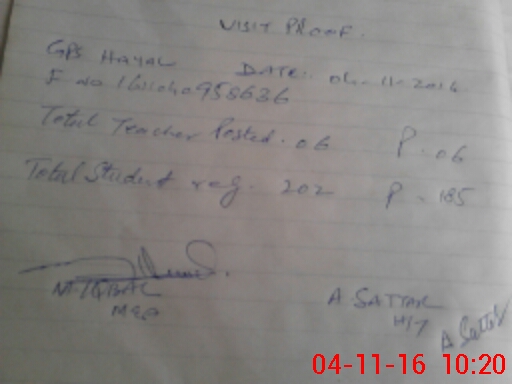 VISIT PROOF.
GPS HAYAL DATE: 04-11-2016
F no
Total Teacher Posted. 06 P. 06
Total Student reg. 202 P. 185
M IQBAL
A SATTAR
H/T
A Sattar
04-11-16 10:20